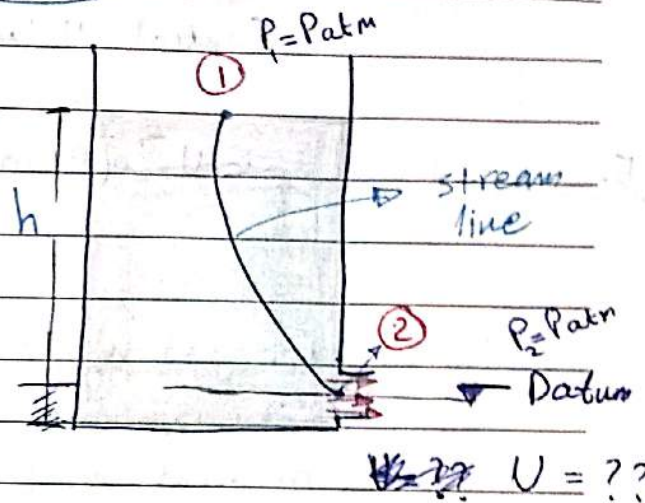 P₁=Patm
①
stream
line
h
②
P₂=Patm
Datum
U = ??